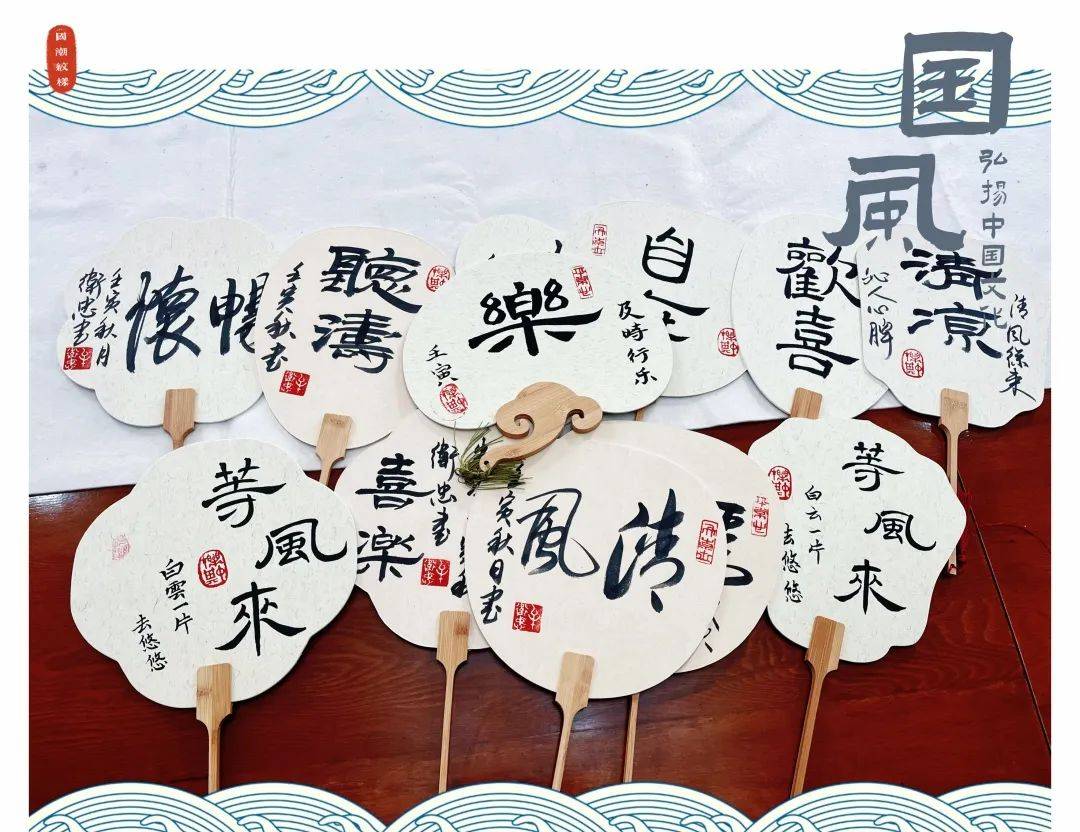 國潮紋樣
国風
弘揚中国文化
暢懷
壬寅秋月
衛忠書
聽濤
壬寅秋書
樂
及時行乐
壬寅
自
歡喜
清凉
清風徐来
沁人心脾
等風來
白雲一片
去悠悠
喜樂
衛忠書
清風
壬寅秋日書
等風來
白云一片
去悠悠